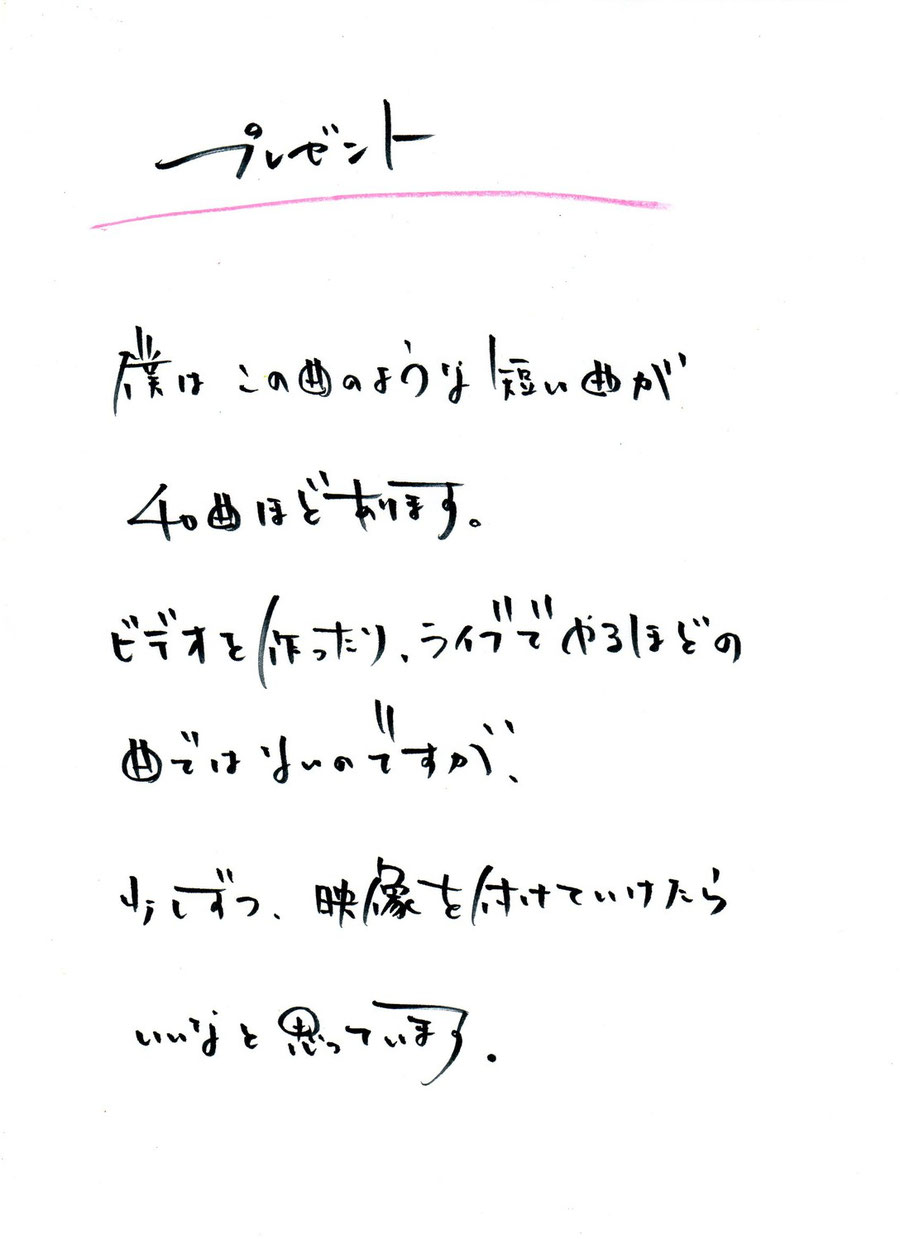 プレゼント
僕は この曲のような 短い曲が
40曲ほどあります。
ビデオを作ったり、ライブでやるほどの
曲ではないのですが、
少しずつ、映像を付けていけたら
いいなと思っています.